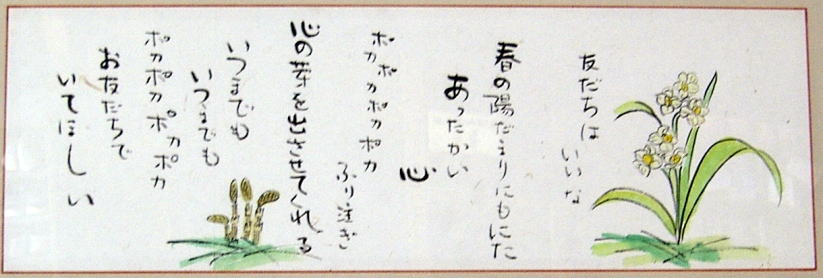 友だちは
いいな
春の陽だまりにもにた
あったかい
心
ポカポカポカポカ
ふり注ぎ
心の芽を出させてくれる
いつまでも
いつまでも
ポカポカポカポカ
お友だちで
いてほしい